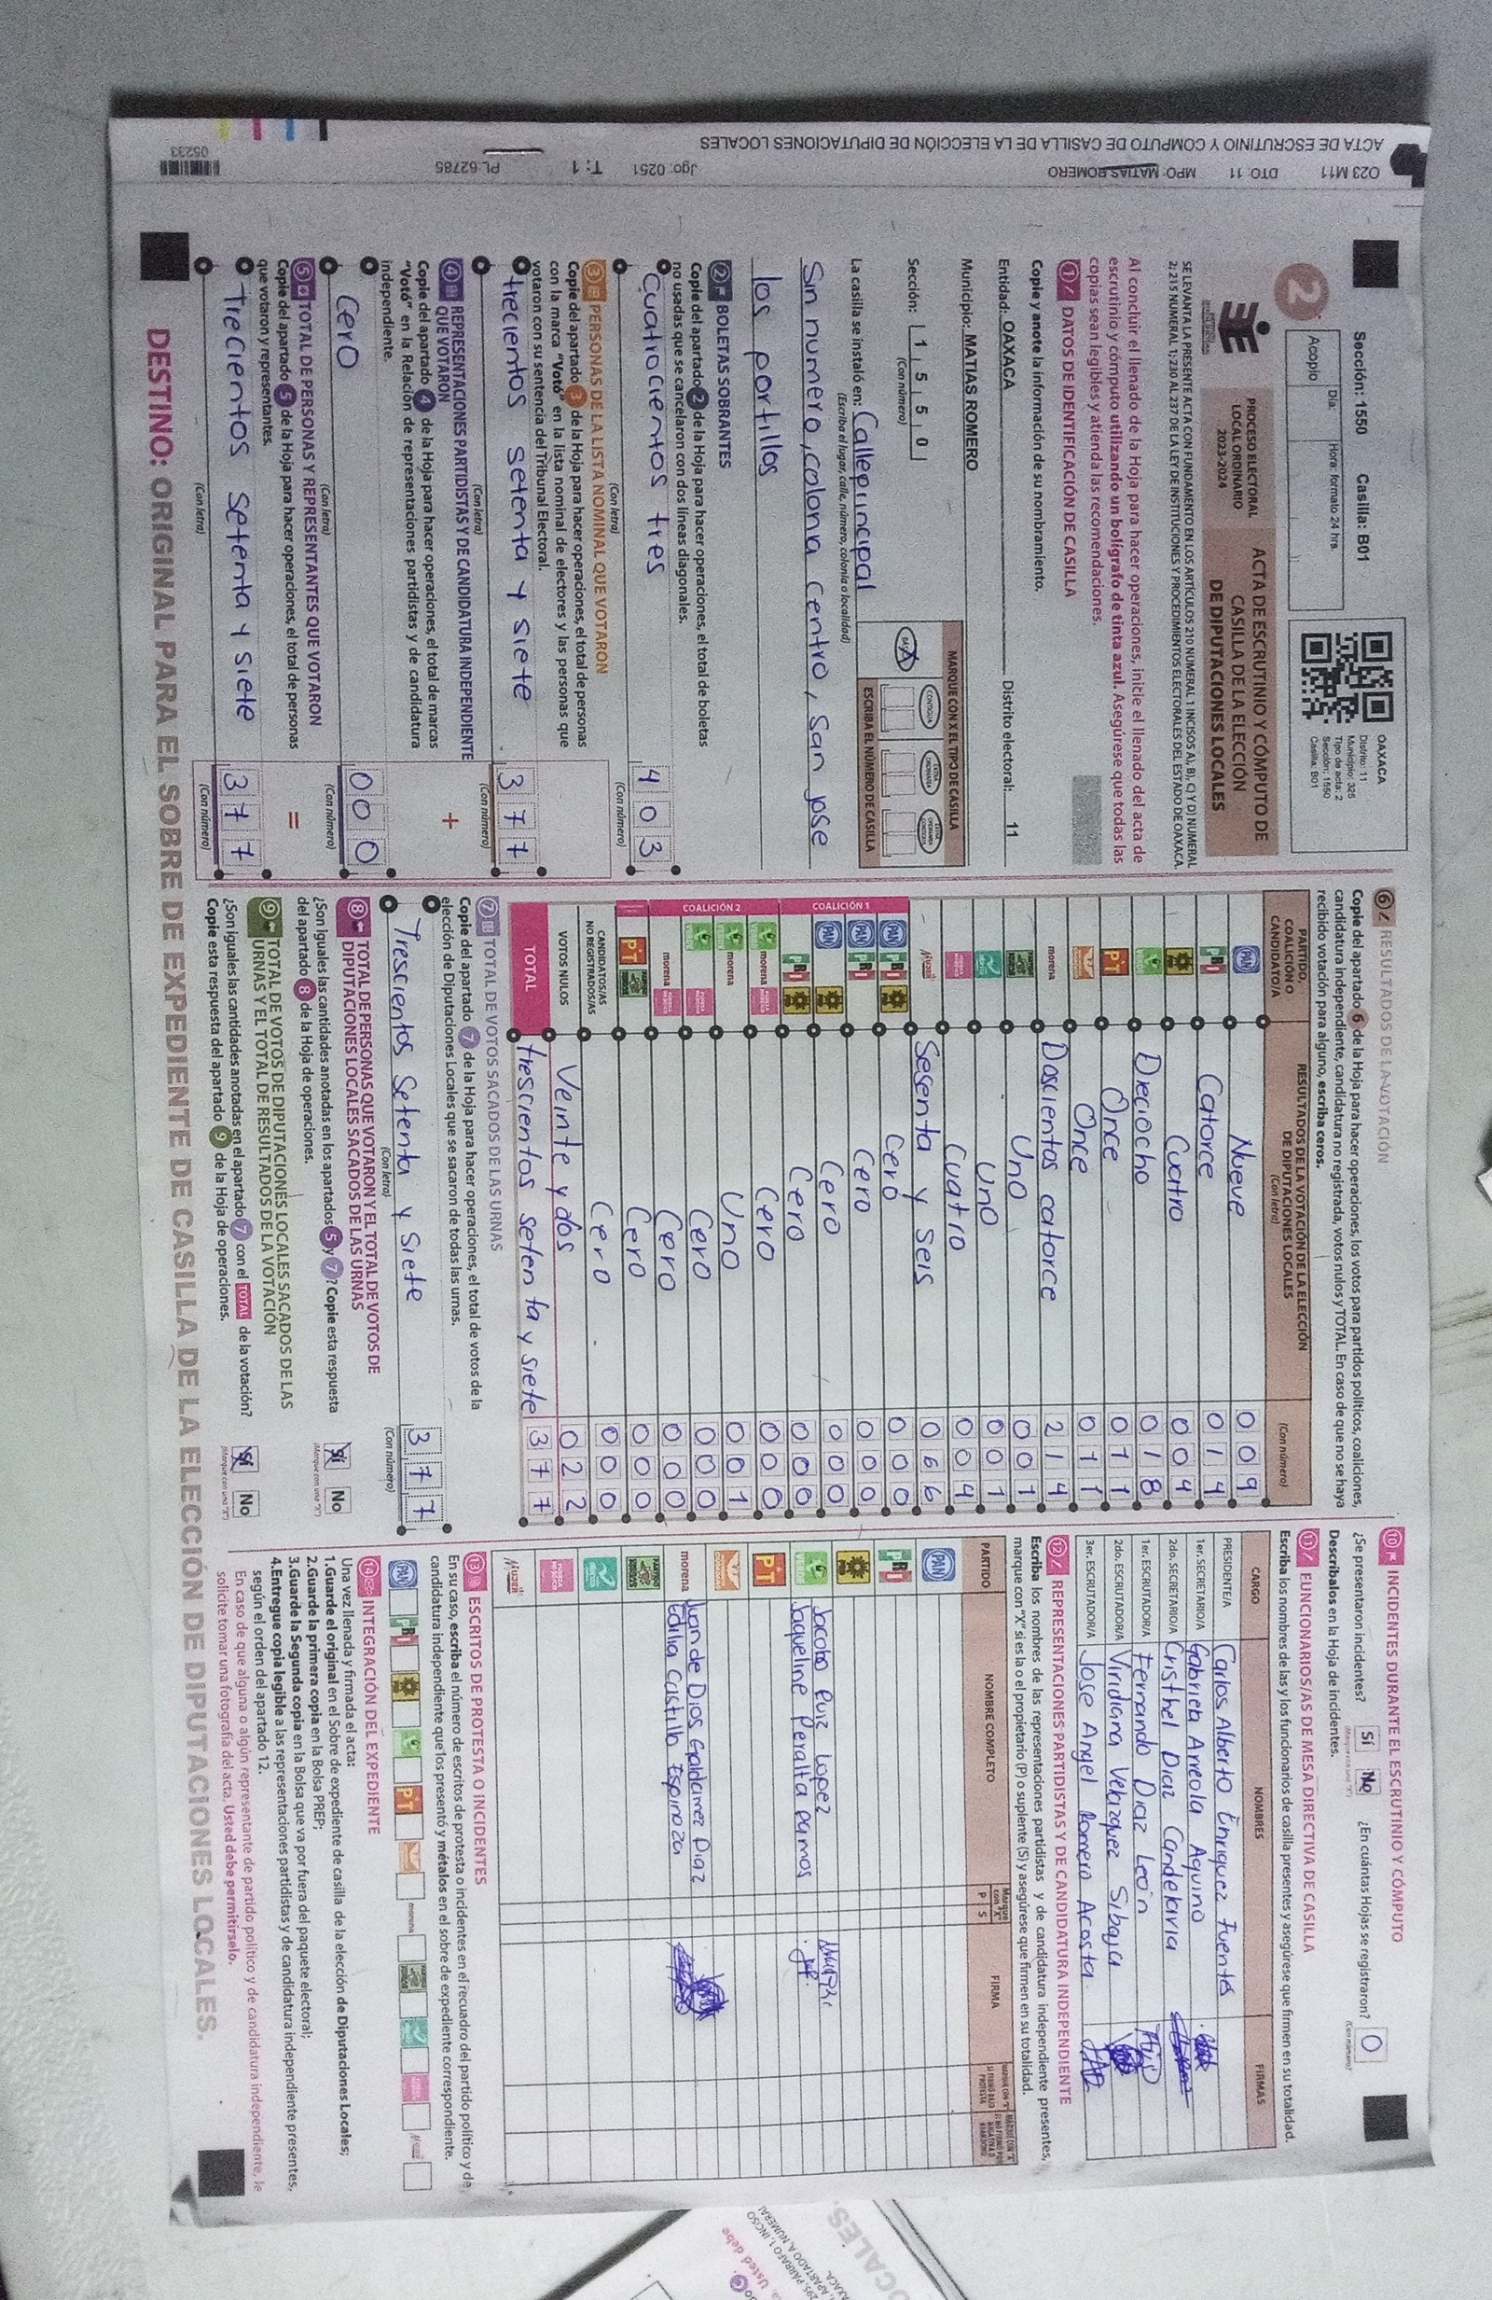 O23 M11 DTO: 11 MPO: MATIAS ROMERO Jgo: 0251 T: 1 PL: 62785 05233
ACTA DE ESCRUTINIO Y CÓMPUTO DE CASILLA DE LA ELECCIÓN DE DIPUTACIONES LOCALES
Sección: 1550 Casilla: B01
2
Día: Hora: formato 24 hrs.
Acopio
OAXACA
Distrito: 11
Municipio: 325
Tipo de acta: 2
Sección: 1550
Casilla: B01
PROCESO ELECTORAL
LOCAL ORDINARIO
2023-2024
ACTA DE ESCRUTINIO Y CÓMPUTO DE
CASILLA DE LA ELECCIÓN
DE DIPUTACIONES LOCALES
SE LEVANTA LA PRESENTE ACTA CON FUNDAMENTO EN LOS ARTÍCULOS 210 NUMERAL 1 INCISOS A), B), C) Y D) NUMERAL
2; 215 NUMERAL 1; 230 AL 237 DE LA LEY DE INSTITUCIONES Y PROCEDIMIENTOS ELECTORALES DEL ESTADO DE OAXACA.
Al concluir el llenado de la Hoja para hacer operaciones, inicie el llenado del acta de
escrutinio y cómputo utilizando un bolígrafo de tinta azul. Asegúrese que todas las
copias sean legibles y atienda las recomendaciones.
1 DATOS DE IDENTIFICACIÓN DE CASILLA
Copie y anote la información de su nombramiento.
Entidad: OAXACA Distrito electoral: 11
Municipio: MATIAS ROMERO
Sección: 1 5 5 0
(Con número)
MARQUE CON X EL TIPO DE CASILLA
ESCRIBA EL NÚMERO DE CASILLA
La casilla se instaló en: Calle principal
(Escriba el lugar, calle, número, colonia o localidad)
Sin numero, colonia centro, san jose
los portillos
2 BOLETAS SOBRANTES
Copie del apartado 2 de la Hoja para hacer operaciones, el total de boletas
no usadas que se cancelaron con dos líneas diagonales.
cuatrocientos tres 4 0 3
(Con letra) (Con número)
3 PERSONAS DE LA LISTA NOMINAL QUE VOTARON
Copie del apartado 3 de la Hoja para hacer operaciones, el total de personas
con la marca "Votó" en la lista nominal de electores y las personas que
votaron con su sentencia del Tribunal Electoral.
trecientos setenta y siete 3 7 7
(Con letra) (Con número)
4 REPRESENTACIONES PARTIDISTAS Y DE CANDIDATURA INDEPENDIENTE
QUE VOTARON
+
Copie del apartado 4 de la Hoja para hacer operaciones, el total de marcas
"Votó" en la Relación de representaciones partidistas y de candidatura
independiente.
Cero 0 0 0
(Con letra) (Con número)
5 TOTAL DE PERSONAS Y REPRESENTANTES QUE VOTARON
=
Copie del apartado 5 de la Hoja para hacer operaciones, el total de personas
que votaron y representantes.
Trecientos setenta y siete 3 7 7
(Con letra) (Con número)
6 RESULTADOS DE LA VOTACIÓN
Copie del apartado 6 de la Hoja para hacer operaciones, los votos para partidos políticos, coaliciones,
candidatura independiente, candidatura no registrada, votos nulos y TOTAL. En caso de que no se haya
recibido votación para alguno, escriba ceros.
PARTIDO, COALICIÓN O CANDIDATO/A
RESULTADOS DE LA VOTACIÓN DE LA ELECCIÓN
DE DIPUTACIONES LOCALES
(Con letra) (Con número)
PAN Nueve 0 0 9
PRI Catorce 0 1 4
PRD Cuatro 0 0 4
Dieciocho 0 1 8
PT Once 0 1 1
Once 0 1 1
morena Doscientos catorce 2 1 4
Uno 0 0 1
Uno 0 0 1
Cuatro 0 0 4
Mujer Sesenta y seis 0 6 6
COALICIÓN 1
PAN PRI PRD Cero 0 0 0
PAN PRI Cero 0 0 0
PAN PRD Cero 0 0 0
PRI PRD Cero 0 0 0
COALICIÓN 2
morena Cero 0 0 0
morena Uno 0 0 1
Cero 0 0 0
morena Cero 0 0 0
PT Cero 0 0 0
CANDIDATOS/AS
NO REGISTRADOS/AS Cero 0 0 0
VOTOS NULOS Veinte y dos 0 2 2
TOTAL trescientos setenta y siete 3 7 7
7 TOTAL DE VOTOS SACADOS DE LAS URNAS
Copie del apartado 7 de la Hoja para hacer operaciones, el total de votos de la
elección de Diputaciones Locales que se sacaron de todas las urnas.
Trescientos Setenta y Siete 3 7 7
(Con letra) (Con número)
8 TOTAL DE PERSONAS QUE VOTARON Y EL TOTAL DE VOTOS DE
DIPUTACIONES LOCALES SACADOS DE LAS URNAS
¿Son iguales las cantidades anotadas en los apartados 5 y 7? Copie esta respuesta
del apartado 8 de la Hoja de operaciones.
Sí No
9 TOTAL DE VOTOS DE DIPUTACIONES LOCALES SACADOS DE LAS
URNAS Y EL TOTAL DE RESULTADOS DE LA VOTACIÓN
¿Son iguales las cantidades anotadas en el apartado 7 con el TOTAL de la votación?
Copie esta respuesta del apartado 9 de la Hoja de operaciones.
Sí No
10 INCIDENTES DURANTE EL ESCRUTINIO Y CÓMPUTO
¿Se presentaron incidentes? Sí No ¿En cuántas Hojas se registraron? 0
Descríbalos en la Hoja de incidentes.
11 FUNCIONARIOS/AS DE MESA DIRECTIVA DE CASILLA
Escriba los nombres de las y los funcionarios de casilla presentes y asegúrese que firmen en su totalidad.
CARGO NOMBRES FIRMAS
PRESIDENTE/A Carlos Alberto Enriquez Fuentes
1er. SECRETARIO/A Gabriela Arreola Aquino
2do. SECRETARIO/A Cristhel Diaz Candelaria
1er. ESCRUTADOR/A Fernando Diaz Leon
2do. ESCRUTADOR/A Viridiana Velazquez Sibaja
3er. ESCRUTADOR/A Jose Angel Romero Acosta
12 REPRESENTACIONES PARTIDISTAS Y DE CANDIDATURA INDEPENDIENTE
Escriba los nombres de las representaciones partidistas y de candidatura independiente presentes,
marque con "X" si es la o el propietario (P) o suplente (S) y asegúrese que firmen en su totalidad.
PARTIDO NOMBRE COMPLETO Marque con "X" P S FIRMA
PAN
PRI
PRD
Jacobo Ruiz Lopez
Jaqueline Peralta Ramos
PT
morena Juan de Dios Galdamez Diaz
Edilia Castillo Espinoza
Mujer
13 ESCRITOS DE PROTESTA O INCIDENTES
En su caso, escriba el número de escritos de protesta o incidentes en el recuadro del partido político y de
candidatura independiente que los presentó y métalos en el sobre de expediente correspondiente.
PAN PRI PRD PT morena
14 INTEGRACIÓN DEL EXPEDIENTE
Una vez llenada y firmada el acta:
1.Guarde el original en el Sobre de expediente de casilla de la elección de Diputaciones Locales;
2.Guarde la primera copia en la Bolsa PREP;
3.Guarde la Segunda copia en la Bolsa que va por fuera del paquete electoral;
4.Entregue copia legible a las representaciones partidistas y de candidatura independiente presentes,
según el orden del apartado 12.
En caso de que alguna o algún representante de partido político y de candidatura independiente, le
solicite tomar una fotografía del acta. Usted debe permitírselo.
DESTINO: ORIGINAL PARA EL SOBRE DE EXPEDIENTE DE CASILLA DE LA ELECCIÓN DE DIPUTACIONES LOCALES.
OCALES.